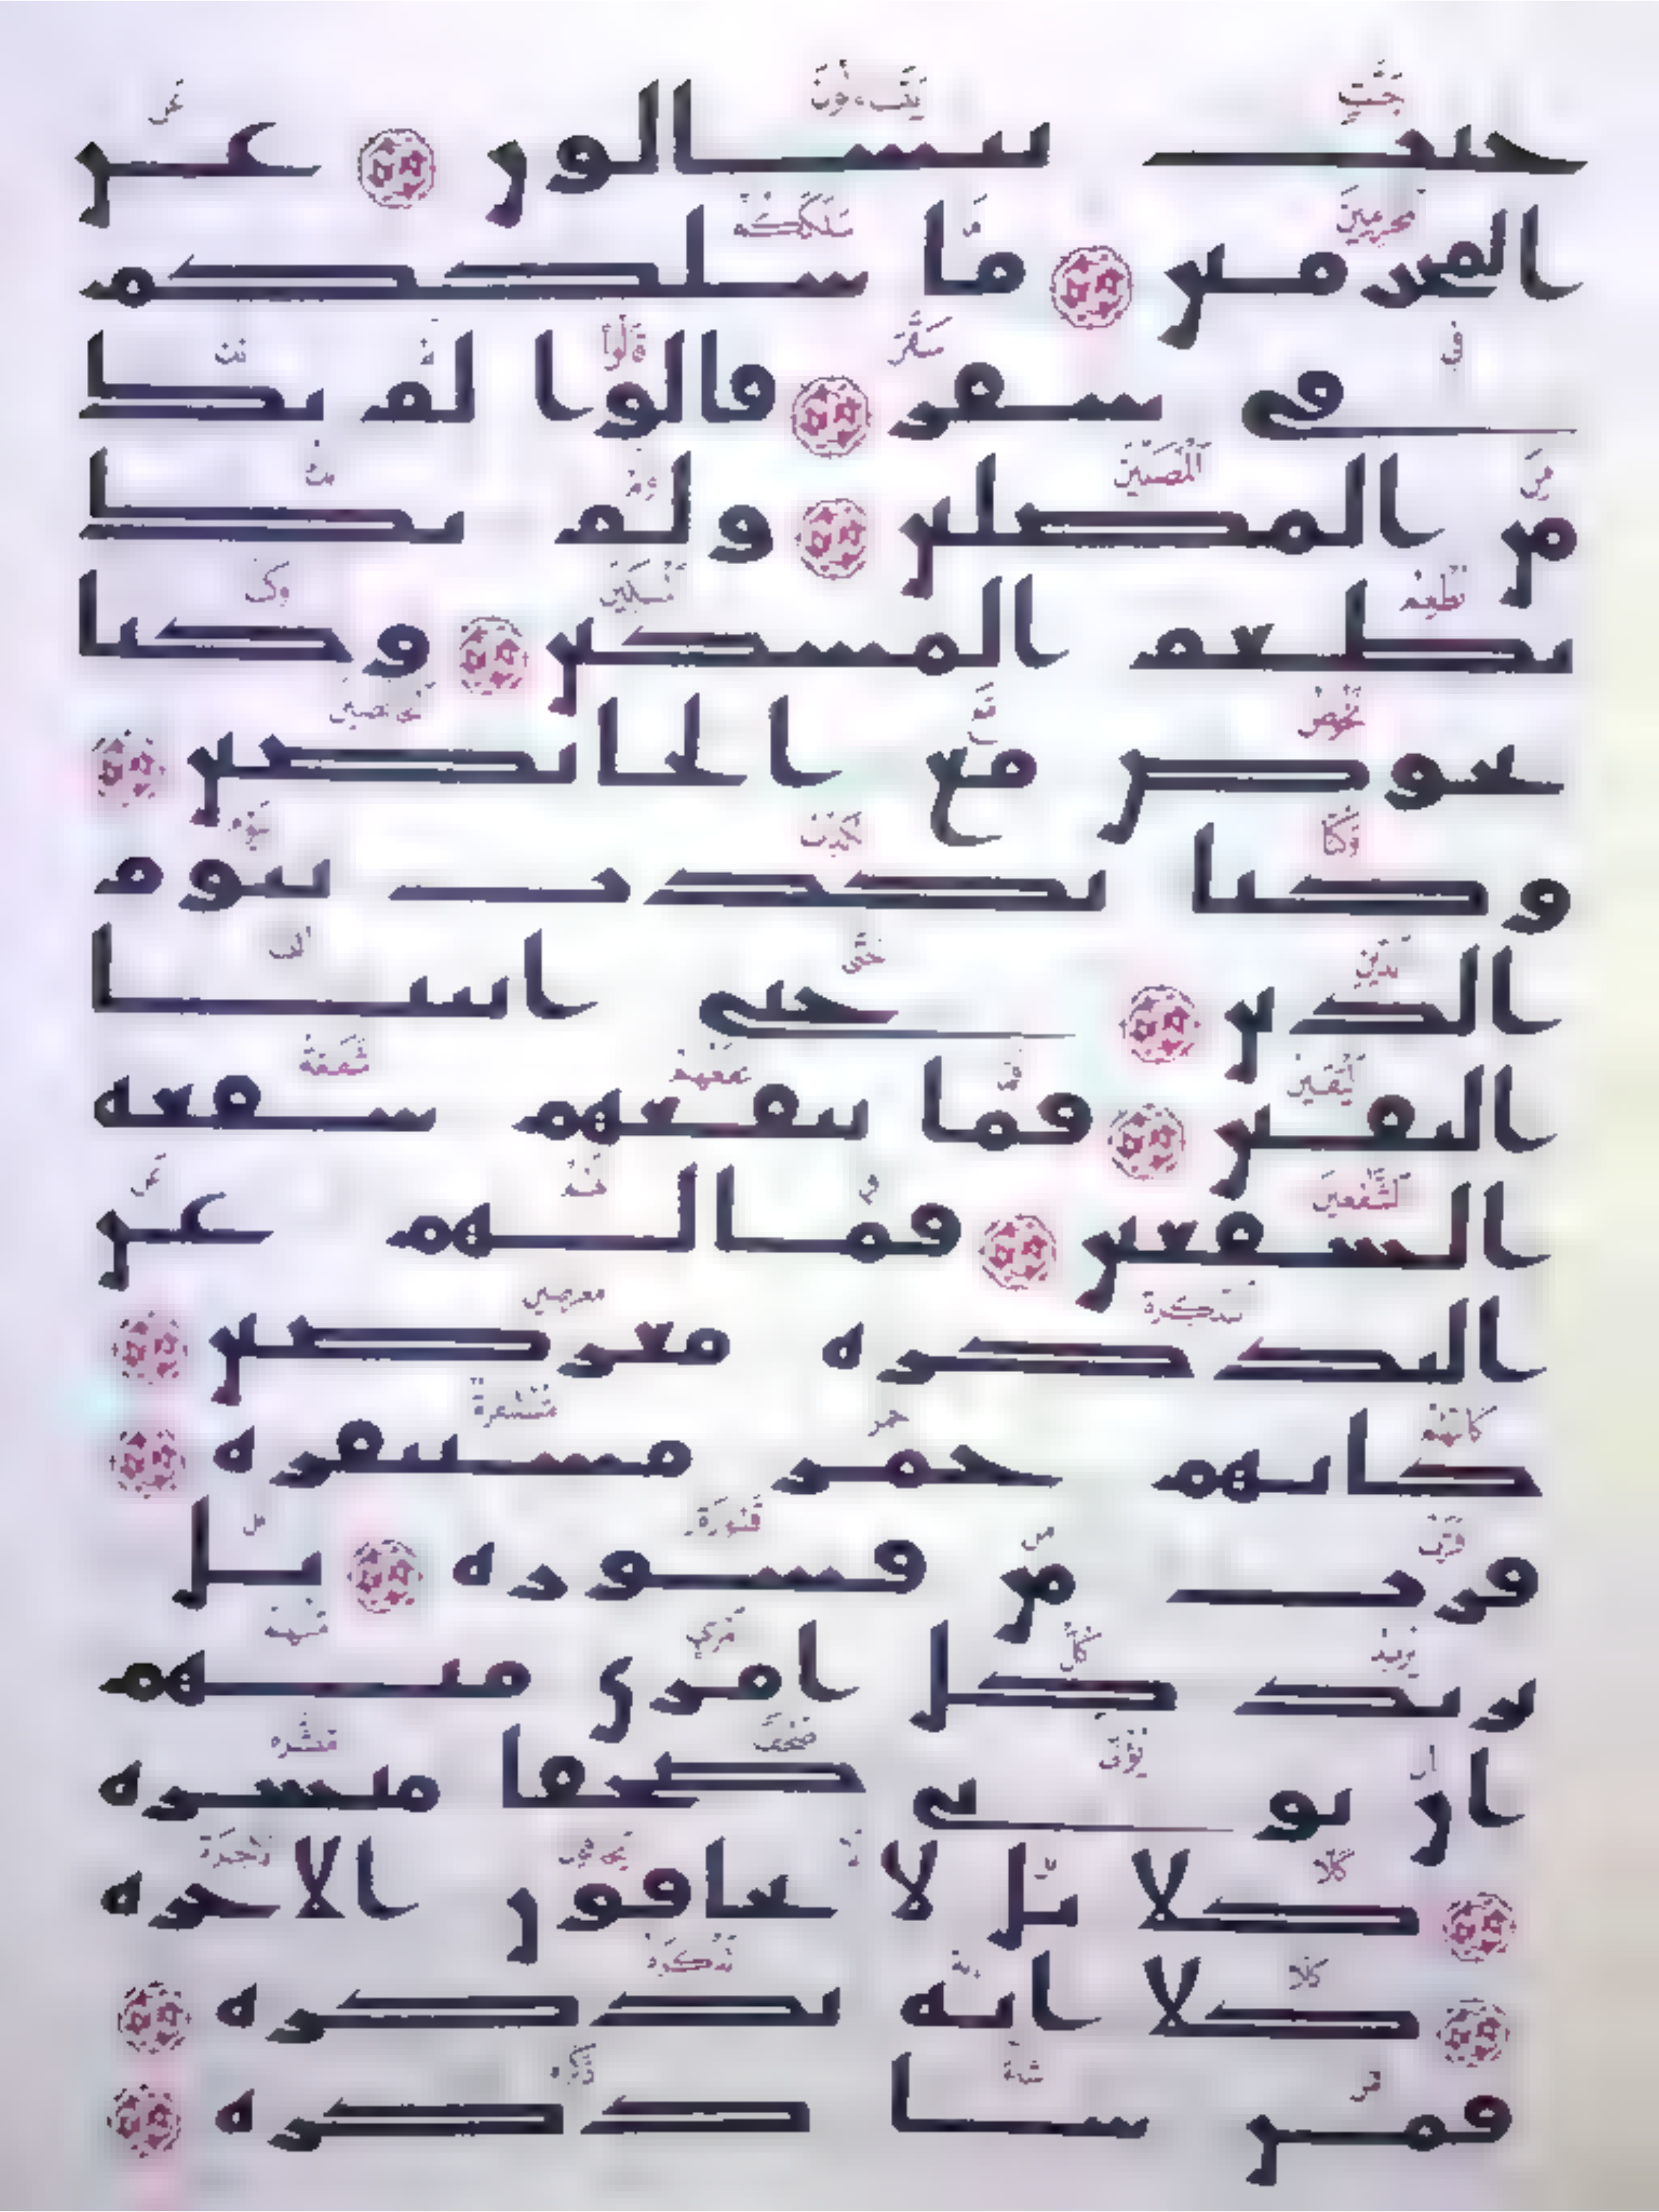 جنت يتسالون عن
المجرمين ما سلككم
في سقر قالوا لم نك
من المصلين ولم نك
نطعم المسكين وكنا
نخوض مع الخائضين
وكنا نكذب بيوم
الدين حتى اتينا
اليقين فما تنفعهم شفعة
الشفعين فما لهم عن
التذكرة معرضين
كانهم حمر مستنفرة
فرت من قسورة بل
يريد كل امرئ منهم
ان يوتى صحفا منشرة
كلا بل لا يخافون الاخرة
كلا انه تذكرة
فمن شا ذكره